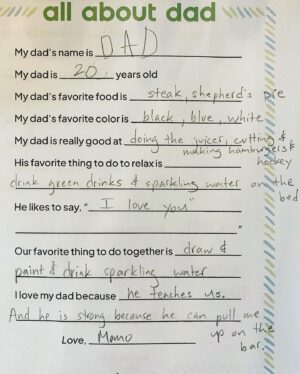 all about dad
My dad's name is DAD
My dad is 20 years old
My dad's favorite food is steak, shepherd's pie
My dad's favorite color is black, blue, white
My dad is really good at doing the juicer, cutting &
making hamburgers & hockey
His favorite thing to do to relax is
drink green drinks & sparkling water on the bed
He likes to say, "I love you"
"
Our favorite thing to do together is draw &
paint & drink sparkling water
I love my dad because he teaches us.
And he is strong because he can pull me
up on the bar.
Love, Momo